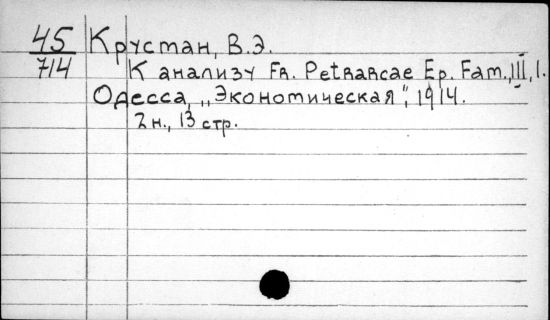 45
714
Крустан, В.Э.
К анализу Fr. Petrarcae Ep. Fam., III, 1.
Одесса, „Экономическая", 1914.
2н., 13 стр.